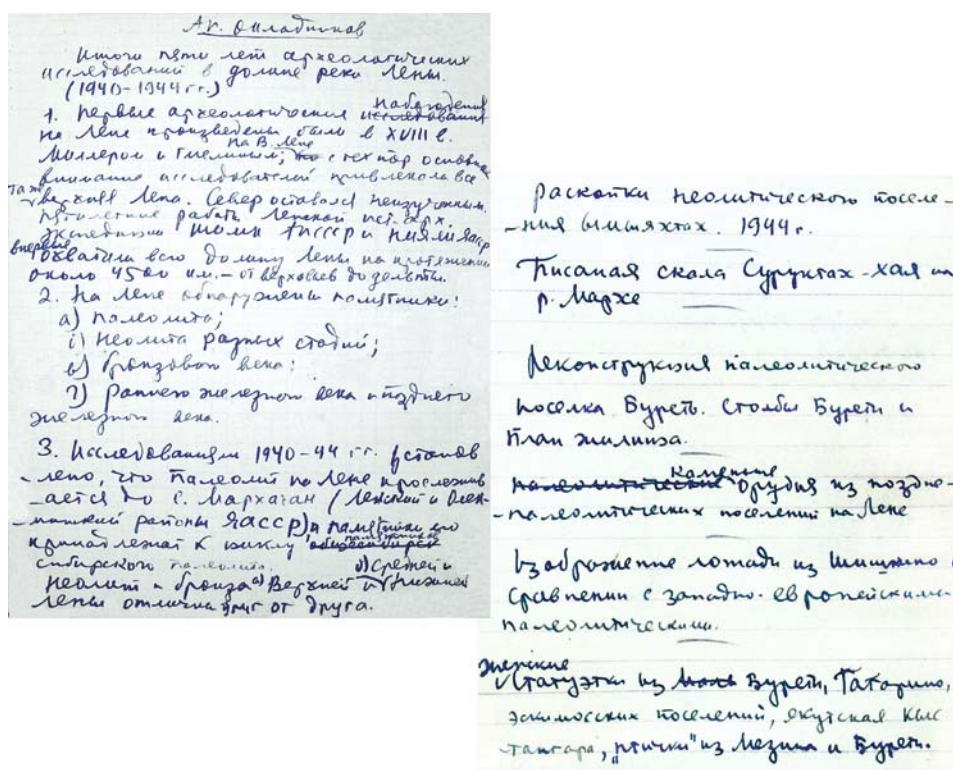 Ак. Окладников
Итоги пяти лет археологических
исследований в долине реки Лены.
(1940-1944 гг.)
наблюдения
1. Первые археологические исследования
на Лене произведены были в XVIII в.
на В. Лене
Миллером и Гмелиным; но с тех пор основное
внимание исследователей привлекала все
та же
верхняя Лена. Север оставался неизученным.
Пятилетние работы Ленской ист. арх.
экспедиции ИИМК АН СССР и НИЯЛИ ЯАССР
впервые
охватили всю долину Лены на протяжении
около 4500 км. – от верховьев до дельты.
2. На Лене обнаружены памятники:
а) палеолита;
неолита разных стадий;
в) бронзового века;
г) раннего железного века и позднего
железного века.
3. Исследованиями 1940-44 гг. установ
-лено, что палеолит на Лене прослежив
-ается до с. Мархачан (Ленский и Олек-
-минский районы ЯАССР), и памятники его
памятников
принадлежат к циклу
сибирского палеолита.
б) Средней и
Неолит и бронза а) Верхней и Нижней
Лены отличны друг от друга.
раскопки неолитического поселе-
-ния Ымыяхтах. 1944 г.
Писаная скала Суруктах-хая на
р. Мархе
Реконструкция палеолитического
поселка Буреть. Столбы Бурети и
план жилища.
каменные
палеолитические орудия из поздне-
-палеолитических поселений на Лене
Изображение лошади из Шишкино в
сравнении с западно-европейскими
палеолитическими.
женские
Статуэтки из Бурети, Гагарино,
эскимосских поселений, якутская кыс
тангара, „птички" из Мезина и Бурети.